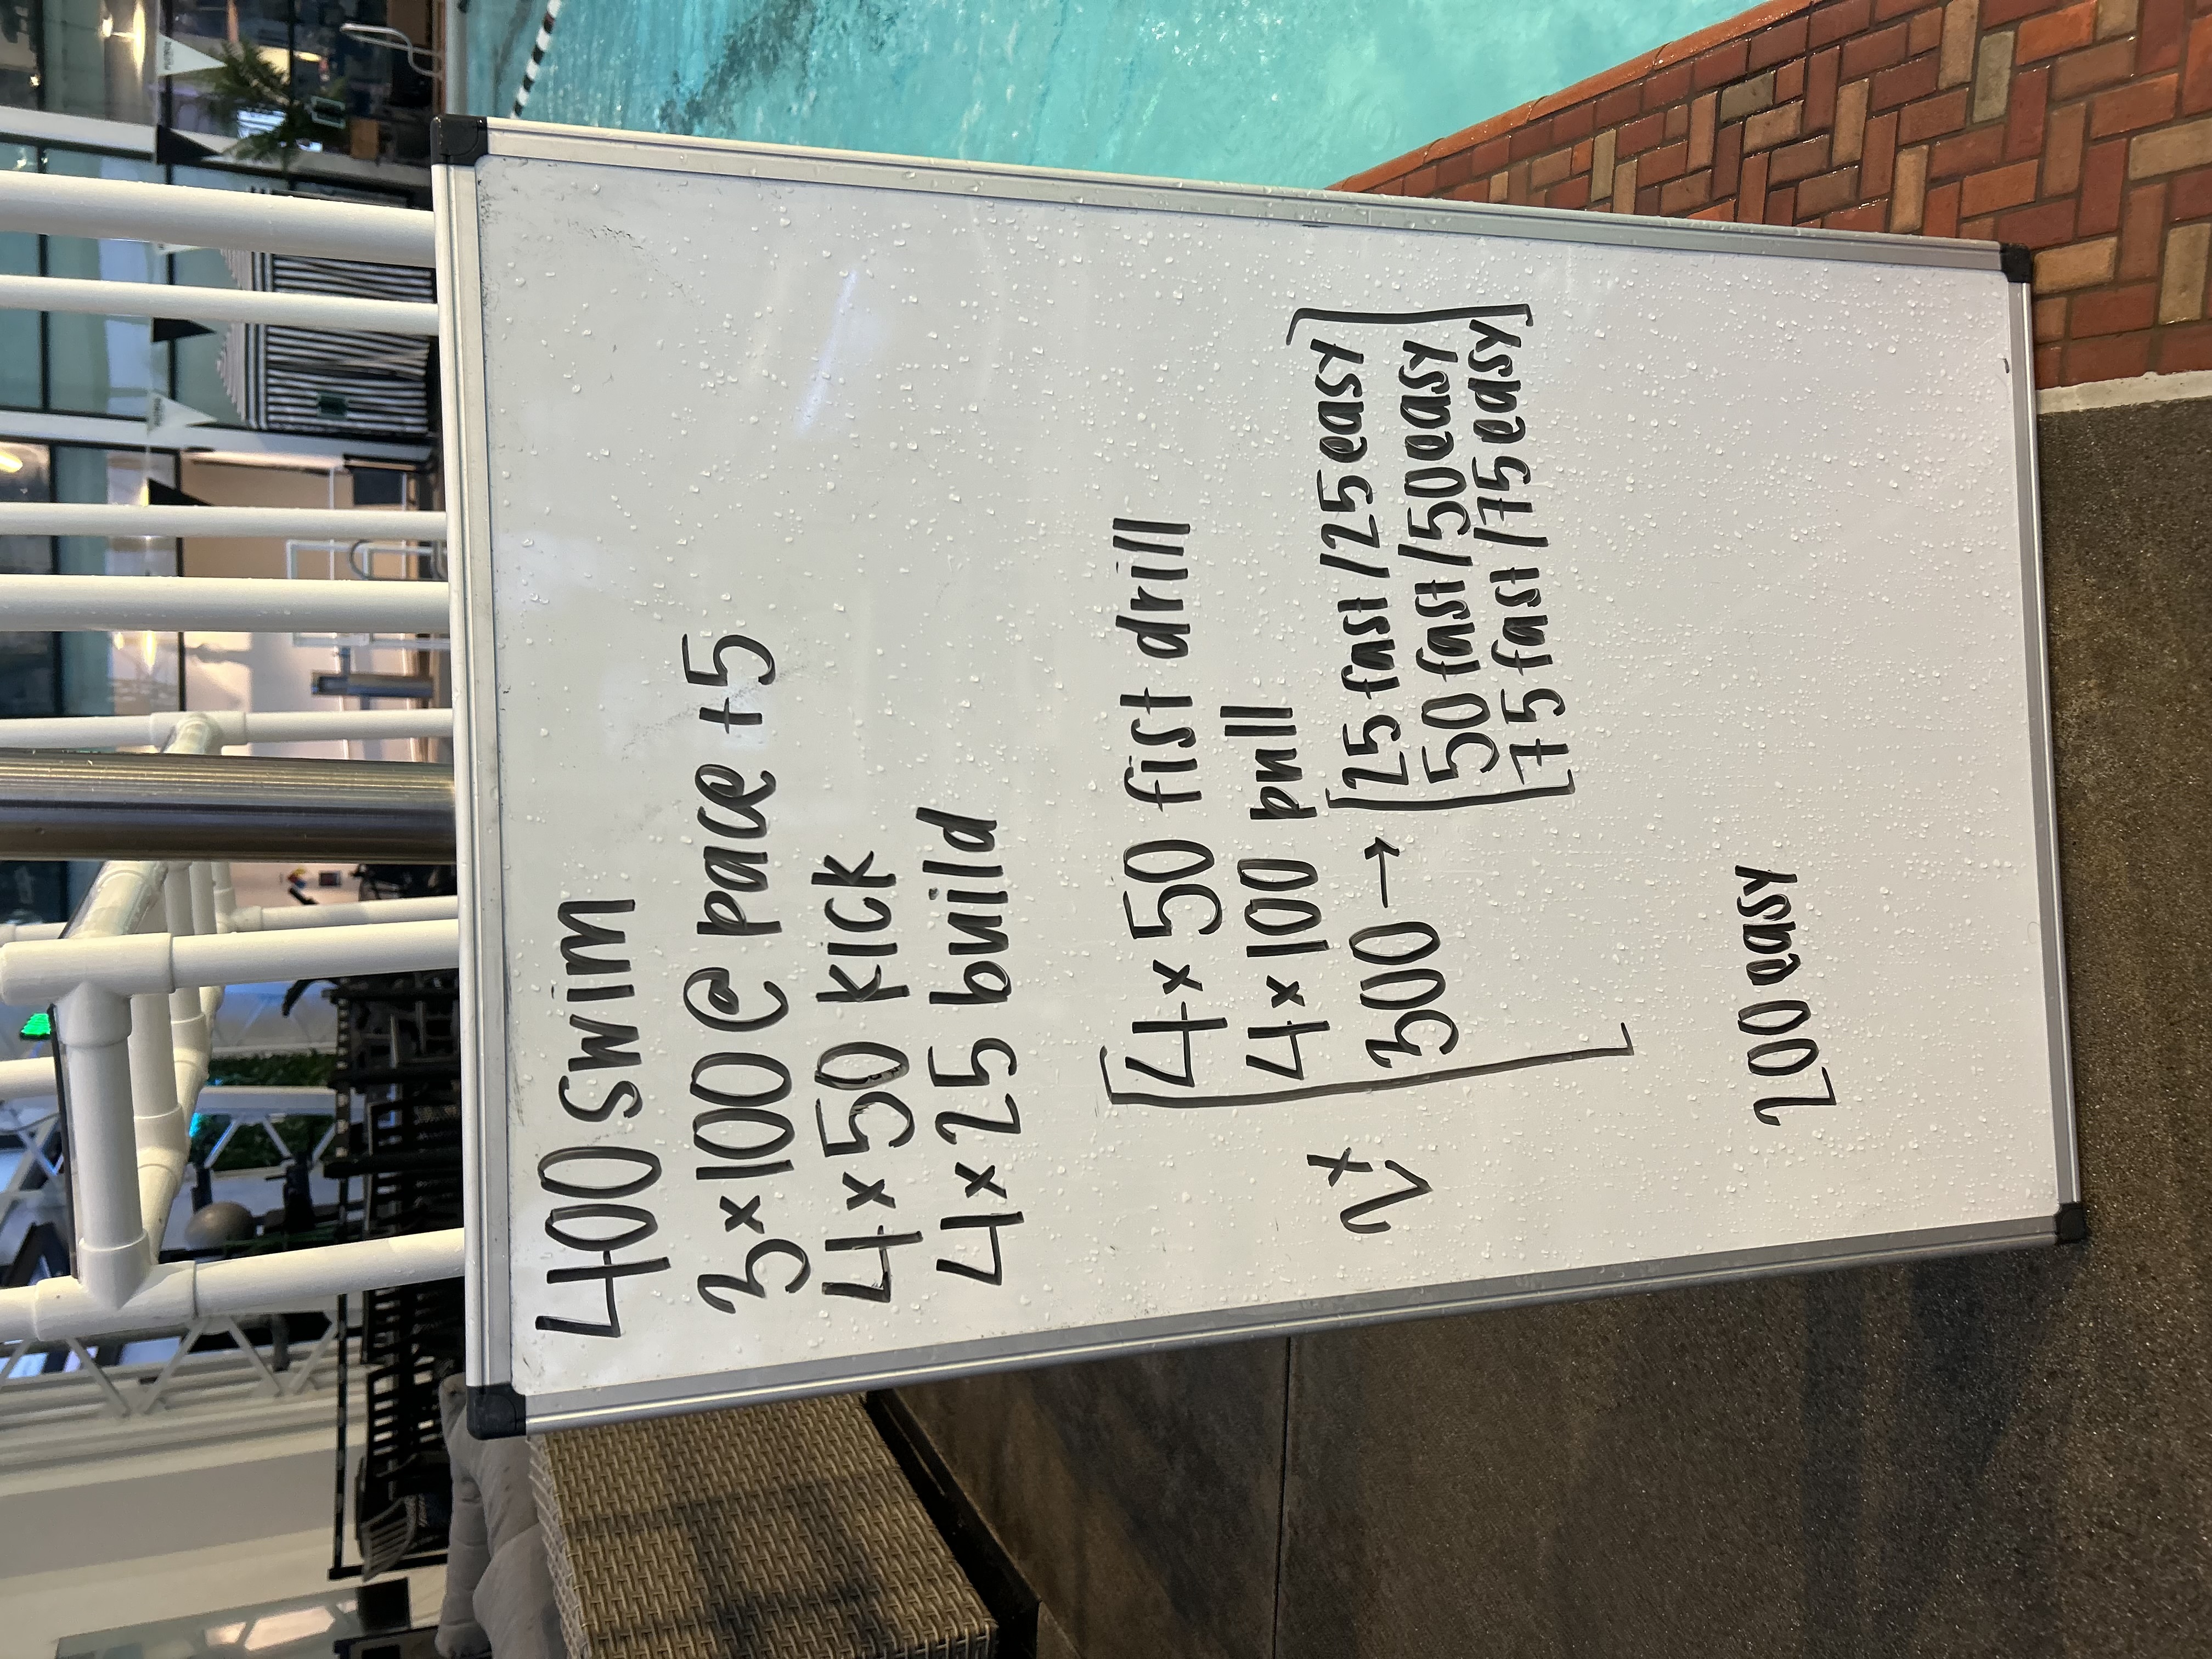 400 swim
3x100 @ pace +5
4x50 kick
4x25 build
4x50 fist drill
4x100 pull
2x
300 → 25 fast/25 easy
50 fast/50 easy
75 fast/75 easy
200 easy